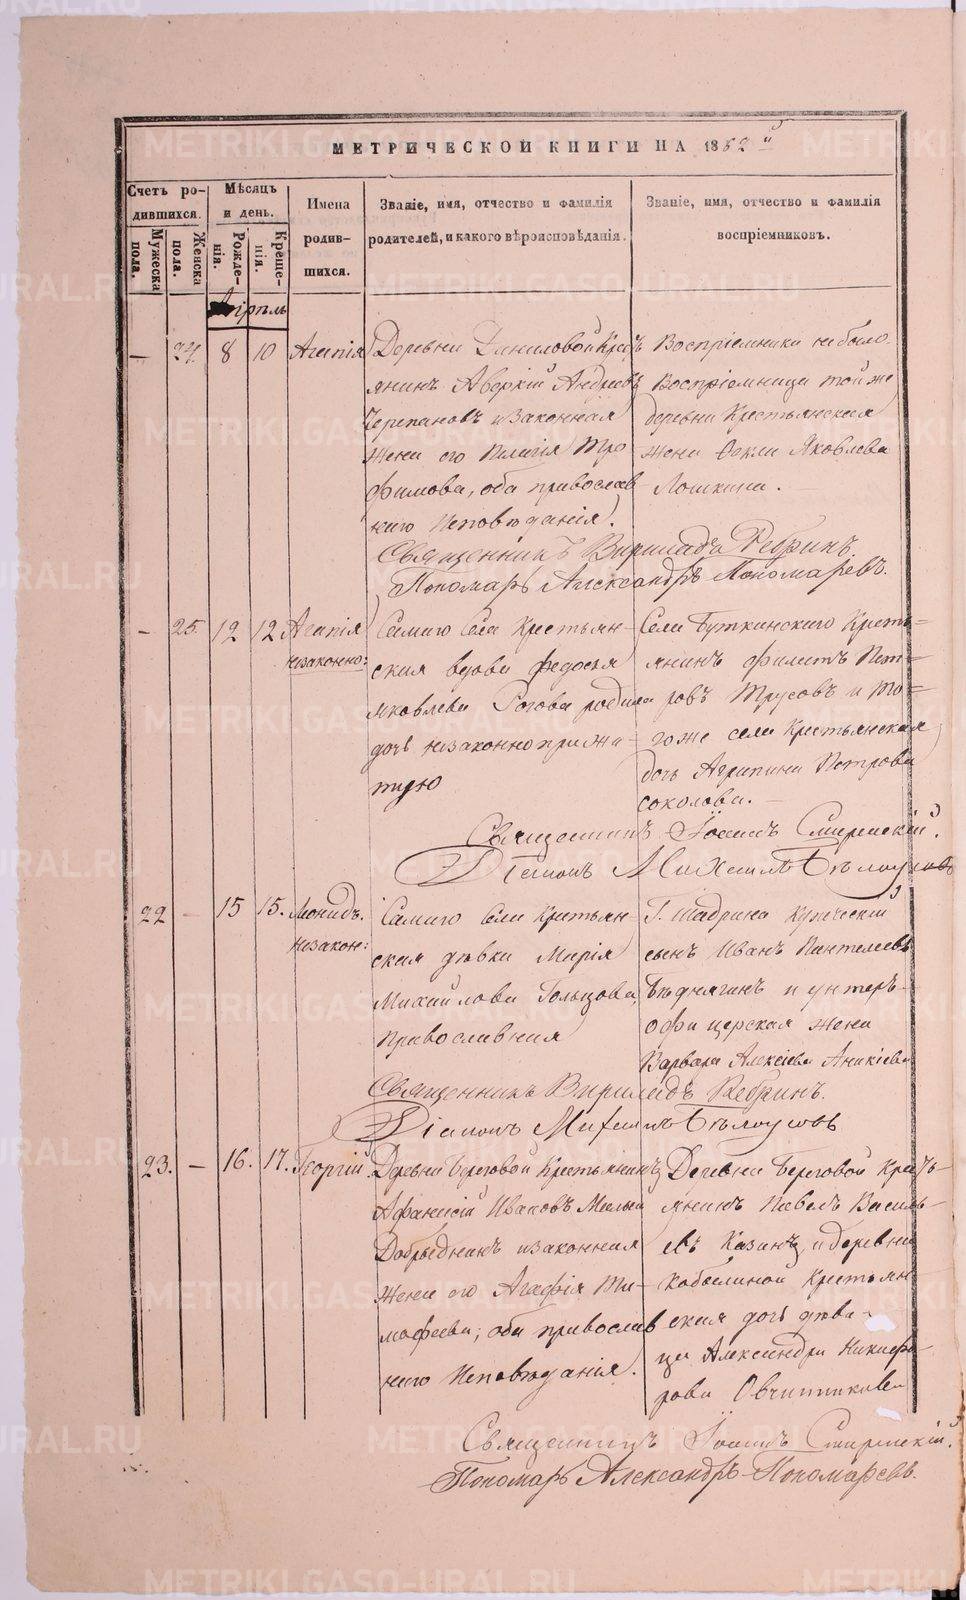 МЕТРИЧЕСКОЙ КНИГИ НА 1862 й
Счетъ ро-
дившихся.
Мужеска
пола.
Женска
пола.
Мѣсяцъ
и день.
Рожде-
нія.
Креще-
нія.
Имена
родив-
шихся.
Званіе, имя, отчество и фамилія
родителей, и какого вѣроисповѣданія.
Званіе, имя, отчество и фамилія
воспріемниковъ.
Апрѣль
— 24. 8 10 Агапія
Деревни Даниловой Крестъ
янинъ Аверкій Андреевъ
Черепановъ и законная
жена его Пелагія Тро
фимова, оба православ
наго Исповѣданія.
Воспріемника небыло.
Воспріемница той же
деревни Крестьянская
жена Фекла Яковлева
Лошкина.
Священникъ Вириладъ Ребринъ.
Пономарь Александръ Пономаревъ.
— 25. 12 12 Агапія
незаконно:
Самаго Села Крестьян-
ская вдова Федосья
Яковлева Рогова родила
дочь незаконноприжи-
тую
Села Буткинскаго Кресть-
янинъ Филатъ Пет-
ровъ Трусовъ и то-
гоже села Крестьянская
дочь Агрипина Петрова
соколова.
Священникъ Іоаннъ Смирнскій.
Діаконъ Михаилъ Бѣлоусовъ
22 — 15 15. Леонидъ.
незакон:
Самаго Села Крестьян
ская дѣвка Марія
Михайлова Гольцова,
православная
Г. Шадрина Купеческій
сынъ Иванъ Пантелеевъ
Бѣднягинъ и унтеръ-
офицерская жена
Варвара Алексіева Аникіева
Священникъ Вириладъ Ребринъ.
Діаконъ Михаилъ Бѣлоусовъ
23. — 16. 17. Георгій.
Деревни Береговой Крестьянинъ
Афанасій Ивановъ Малый
Добрыднинъ и законная
жена его Агафія Ти-
мофеева; оба православ
наго Исповѣданія.
Деревни Береговой Кресть-
янинъ Павелъ Василь-
евъ Казанц, и деревни
Кобылиной Крестьян
ская дочь дѣви-
ца Александра Никифо-
рова Овчинникова
Священникъ Іоаннъ Смирнскій.
Пономарь Александръ Пономаревъ.